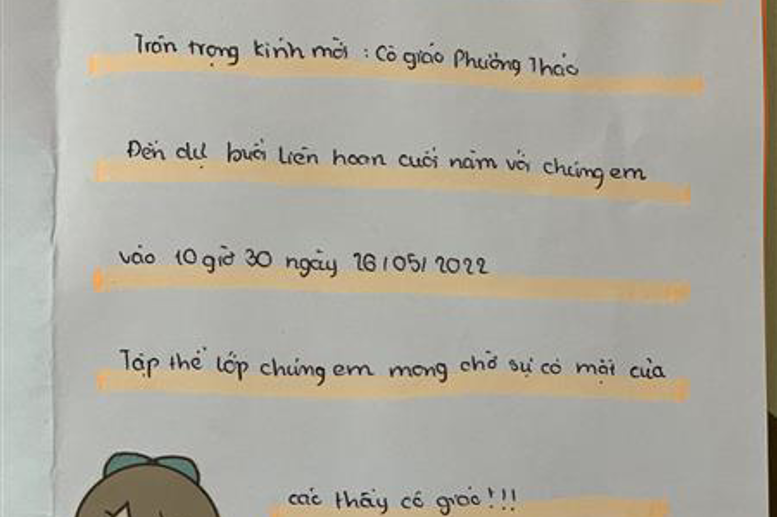 Trân trọng kính mời : Cô giáo Phương Thảo
Đến dự buổi liên hoan cuối năm với chúng em
vào 10 giờ 30 ngày 26/05/2022
Tập thể lớp chúng em mong chờ sự có mặt của
các thầy cô giáo!!!